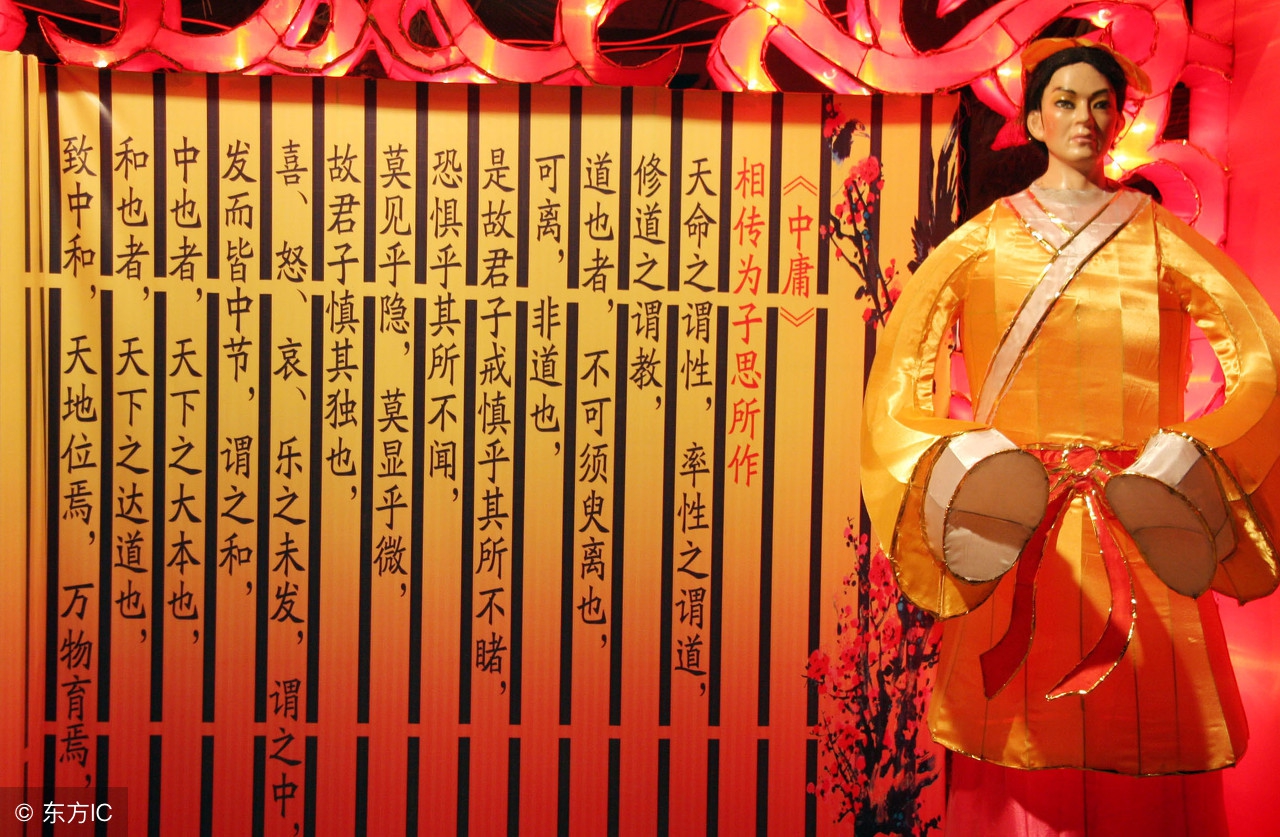 《中庸》
相传为子思所作
天命之谓性，率性之谓道，
修道之谓教，
道也者，不可须臾离也，
可离，非道也，
是故君子戒慎乎其所不睹，
恐惧乎其所不闻，
莫见乎隐，莫显乎微，
故君子慎其独也，
喜、怒、哀、乐之未发，谓之中，
发而皆中节，谓之和，
中也者，天下之大本也，
和也者，天下之达道也，
致中和，天地位焉，万物育焉，
© 东方IC